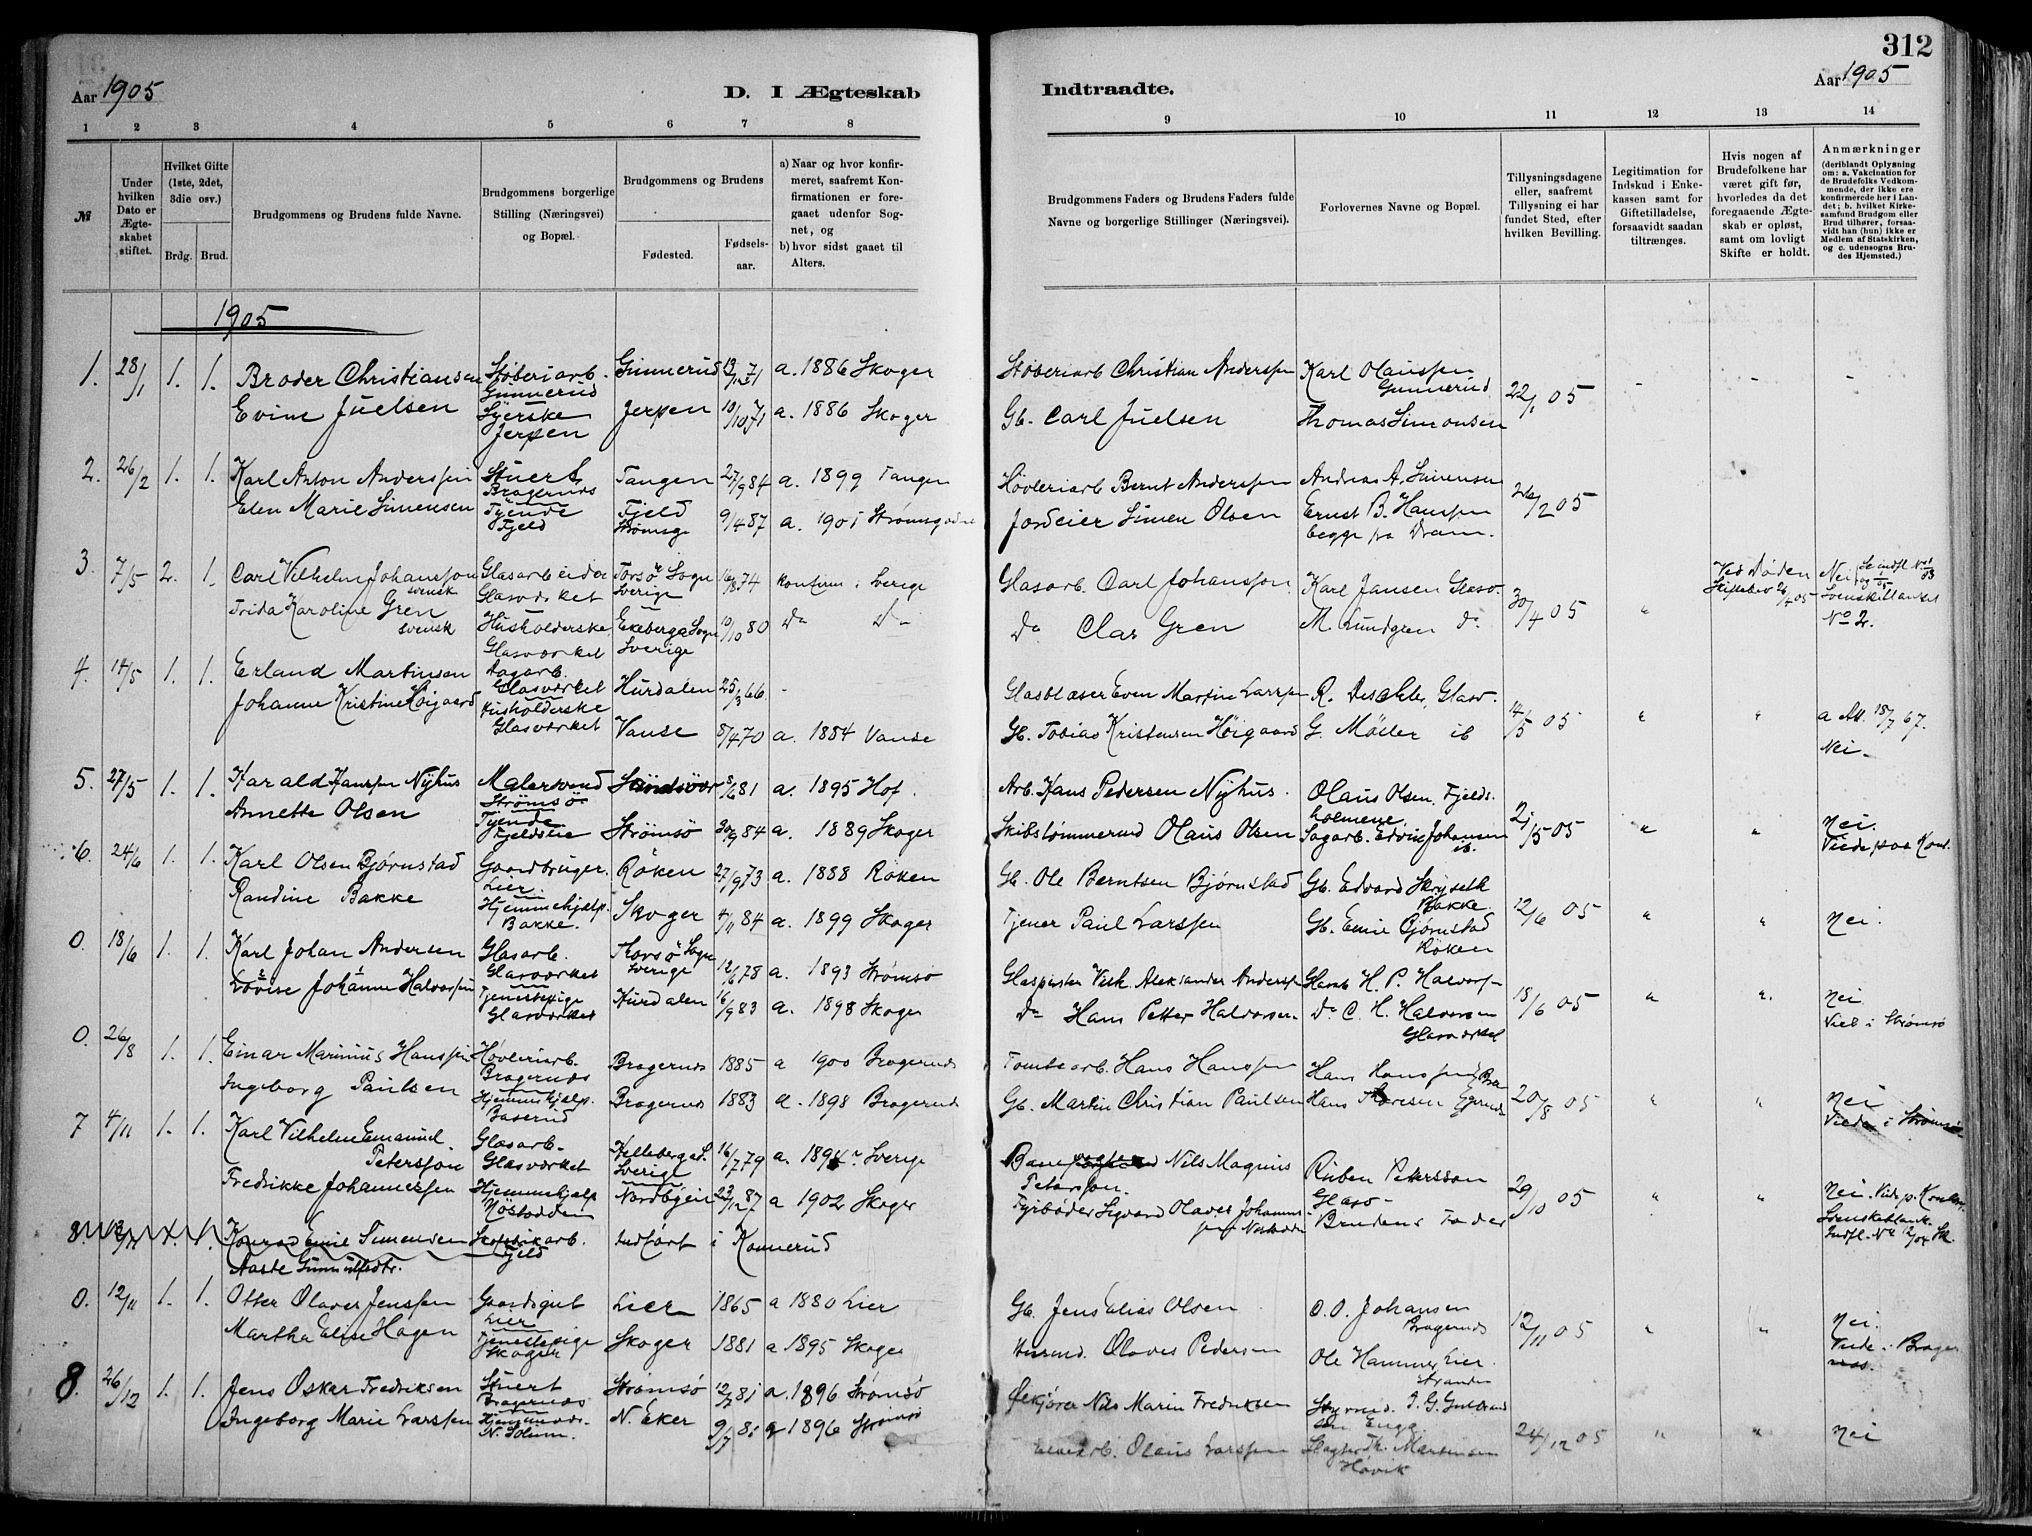 312
Aar 1905
D. I Ægteskab
Indtraadte.
Aar 1905
1 2 3 4 5 6 7 8 9 10 11 12 13 14
№
Under hvilken Dato er Ægteskabet stiftet.
Hvilket Gifte (1ste, 2det, 3die osv.)
Brdg. Brud.
Brudgommens og Brudens fulde Navne.
Brudgommens borgerlige Stilling (Næringsvei) og Bopæl.
Brudgommens og Brudens
Fødested.
Fødselsaar.
a) Naar og hvor konfirmeret, saafremt Konfirmationen er foregaaet udenfor Sognet, og
b) hvor sidst gaaet til Alters.
Brudgommens Faders og Brudens Faders fulde Navne og borgerlige Stillinger (Næringsvei).
Forlovernes Navne og Bopæl.
Tillysningsdagene eller, saafremt Tillysning ei har fundet Sted, efter hvilken Bevilling.
Legitimation for Indskud i Enkekassen samt for Giftetilladelse, forsaavidt saadan tiltrænges.
Hvis nogen af Brudefolkene har været gift før, hvorledes da det foregaaende Ægteskab er opløst, samt om lovligt Skifte er holdt.
Anmærkninger
(deriblandt Oplysning om: a. Vakcination for de Brudefolks Vedkommende, der ikke ere konfirmerede her i Landet; b. hvilket Kirkesamfund Brudgom eller Brud tilhører, forsaavidt han (hun) ikke er Medlem af Statskirken, og c. udensogns Brudes Hjemsted.)
1905
1. 28/1 1. 1. Broder Christiansen Støberiarb. Gunnerud Gunnerud 13/12 71 a. 1886 Skoger Støberiarb Christian Anderssen Karl Olaussen Gunnerud 22/1 05 - - -
Evine Juelsen Syerske Jerpen Jerpen 10/10 71 a. 1886 Skoger Gb. Carl Juelsen Thomas Simonsen
2. 26/2 1. 1. Karl Anton Anderssen Stuert Bragernæs Tangen 27/9 84 a. 1899 Tangen Høvleriarb Bernt Anderssen Andreas A. Simensen 26/2 05
Elen Marie Simensen Tjende Fjeld Fjeld Strømsg 9/4 87 a. 1901 Strømsgodset Jordeier Simen Olsen Ernst B. Hanssen begge fra Dram.
3. 7/5 2. 1. Carl Vilhelm Johansson svensk Glasarbeider Glasværket Torsö Sogn Sverige 16/8 74 konfirm. i Sverige Glasarb. Carl Johansson Karl Jansen Glasv. 30/4 05 " Ved Døden Skiftebev 26/4 05 Nei
Frida Karoline Gren svensk Husholderske Glasværket Ekeberga Sogn Sverige 10/10 80 Do Do Do Clas Gren M. Lundgren Do Svenskeblanket No 2.
4. 14/5 1. 1. Erland Martinsen Dagarb. Glasværket Hurdalen 25/3 66. - Glasblæser Even Martin Larssen R. Deschler, Glasv. 14/5 05 " " a Att. 18/7 67.
Johanne Kristine Høigaard Husholderske Glasværket Vanse 8/4 70 a. 1884 Vanse Gb. Tobias Kristensen Høigaard G. Møller ib Nei -
5. 27/5 1. 1. Harald Hanssen Nyhus Malersvend Strømsø Sandsvær 8/6 81 a. 1895 Hof. Arb. Hans Pedersen Nyhus. Olaus Olsen, Fjelds. holmene. 21/5 05 " " Nei.
Annette Olsen Tjende Fjeldslie Strømsö 30/9 84 a. 1889 Skoger Skibstømmermd Olaus Olsen Sagarb. Edvin Johansen ib. Viede paa Kont.
6. 24/6 1. 1. Karl Olsen Bjørnstad Gaardbruger. Lier. Röken 27/9 73 a. 1888 Röken Gb. Ole Berntsen Bjørnstad Gb. Edvard Skryseth Bakke. 12/6 05 " " Nei.
Randine Bakke Hjemmehjælp. Bakke. Skoger 4/11 84 a. 1899 Skoger Tjener Paul Larssen Gb. Emil Bjørnstad Röken
0. 18/6 1. 1. Karl Johan Andersen Glasarb. Glasværket Thorsö Sogn Sverige 12/6 78 a. 1893 Strømsø Glaspuster Vilh. Aleksander Anderssen Glasarb H. P. Halvors- 18/6 05 " ". Nei
Lovise Johanne Halvorssen Tjenestepige Glasværket Hurdalen 16/9 83 a. 1898 Skoger Do Hans Petter Halvorsen. Do C. H. Halvorsen Glasværket Viet i Strømsø
0. 26/8 1. 1. Einar Marinius Hanssen Høvleriarb. Bragernæs Bragernæs 1885 a 1900 Bragernæs Tomtearb. Hans Hanssen Hans Hanssen, Bra 20/8 05 " " Nei
Ingeborg Paulsen Hjemmehjælp. Baserud Bragernæs 1883 a. 1898 Bragernæs Gb. Martin Christian Paulsen Hans Thoresen Viede i Strømsø
7 4/11 1. 1. Karl Vilhelm Emanuel Petersson Glasarb. Glasværket Helleberga S. Sverige 16/7 79 a. 1894 Sverige Nils Magnus Petersson. Ruben Petersson Glasv- 29/10 05 " " Nei. Viede p. Kontor.
Fredrikke Johannessen Hjemmehjelp Møstadden Nordbyeie 23/12 87 a 1902 Skoger Fyrbøder Sigvard Olaves Johannessen Brudens Fader Svenskeblank.
8. 1. 1. Konrad Emil Simensen Fabrikarb. Fjeld indført i Konnerud
Aaste Gunnulfsdtr.
0. 12/11 1. 1. Otter Olaves Jenssen Gaardsgut Lier Lier 1865 a 1880 Lier Gb. Jens Elias Olsen O. O. Johansen Bragernæs 12/11 05 " " Nei.
Martha Elise Hagen Tjenestepige Skoger Skoger 1881 a 1895 Skoger Husmd. Olaves Pedersen Ole Hammer, Lier. Stranden Viede i Bragernæs.
8. 26/12 1. 1. Jens Oskar Fredriksen Stuert Bragernæs Strømsö 12/7 81 a. 1896 Strømsö Nils Marin Fredriksen I. G. Guldbrand Enga 24/12 05 " " Nei
Ingeborg Marie Larssen N. Solum. N. Eker 9/7 81 a 1896 Strømsö Olaus Larssen Slagter Th. Martinsen Høvik